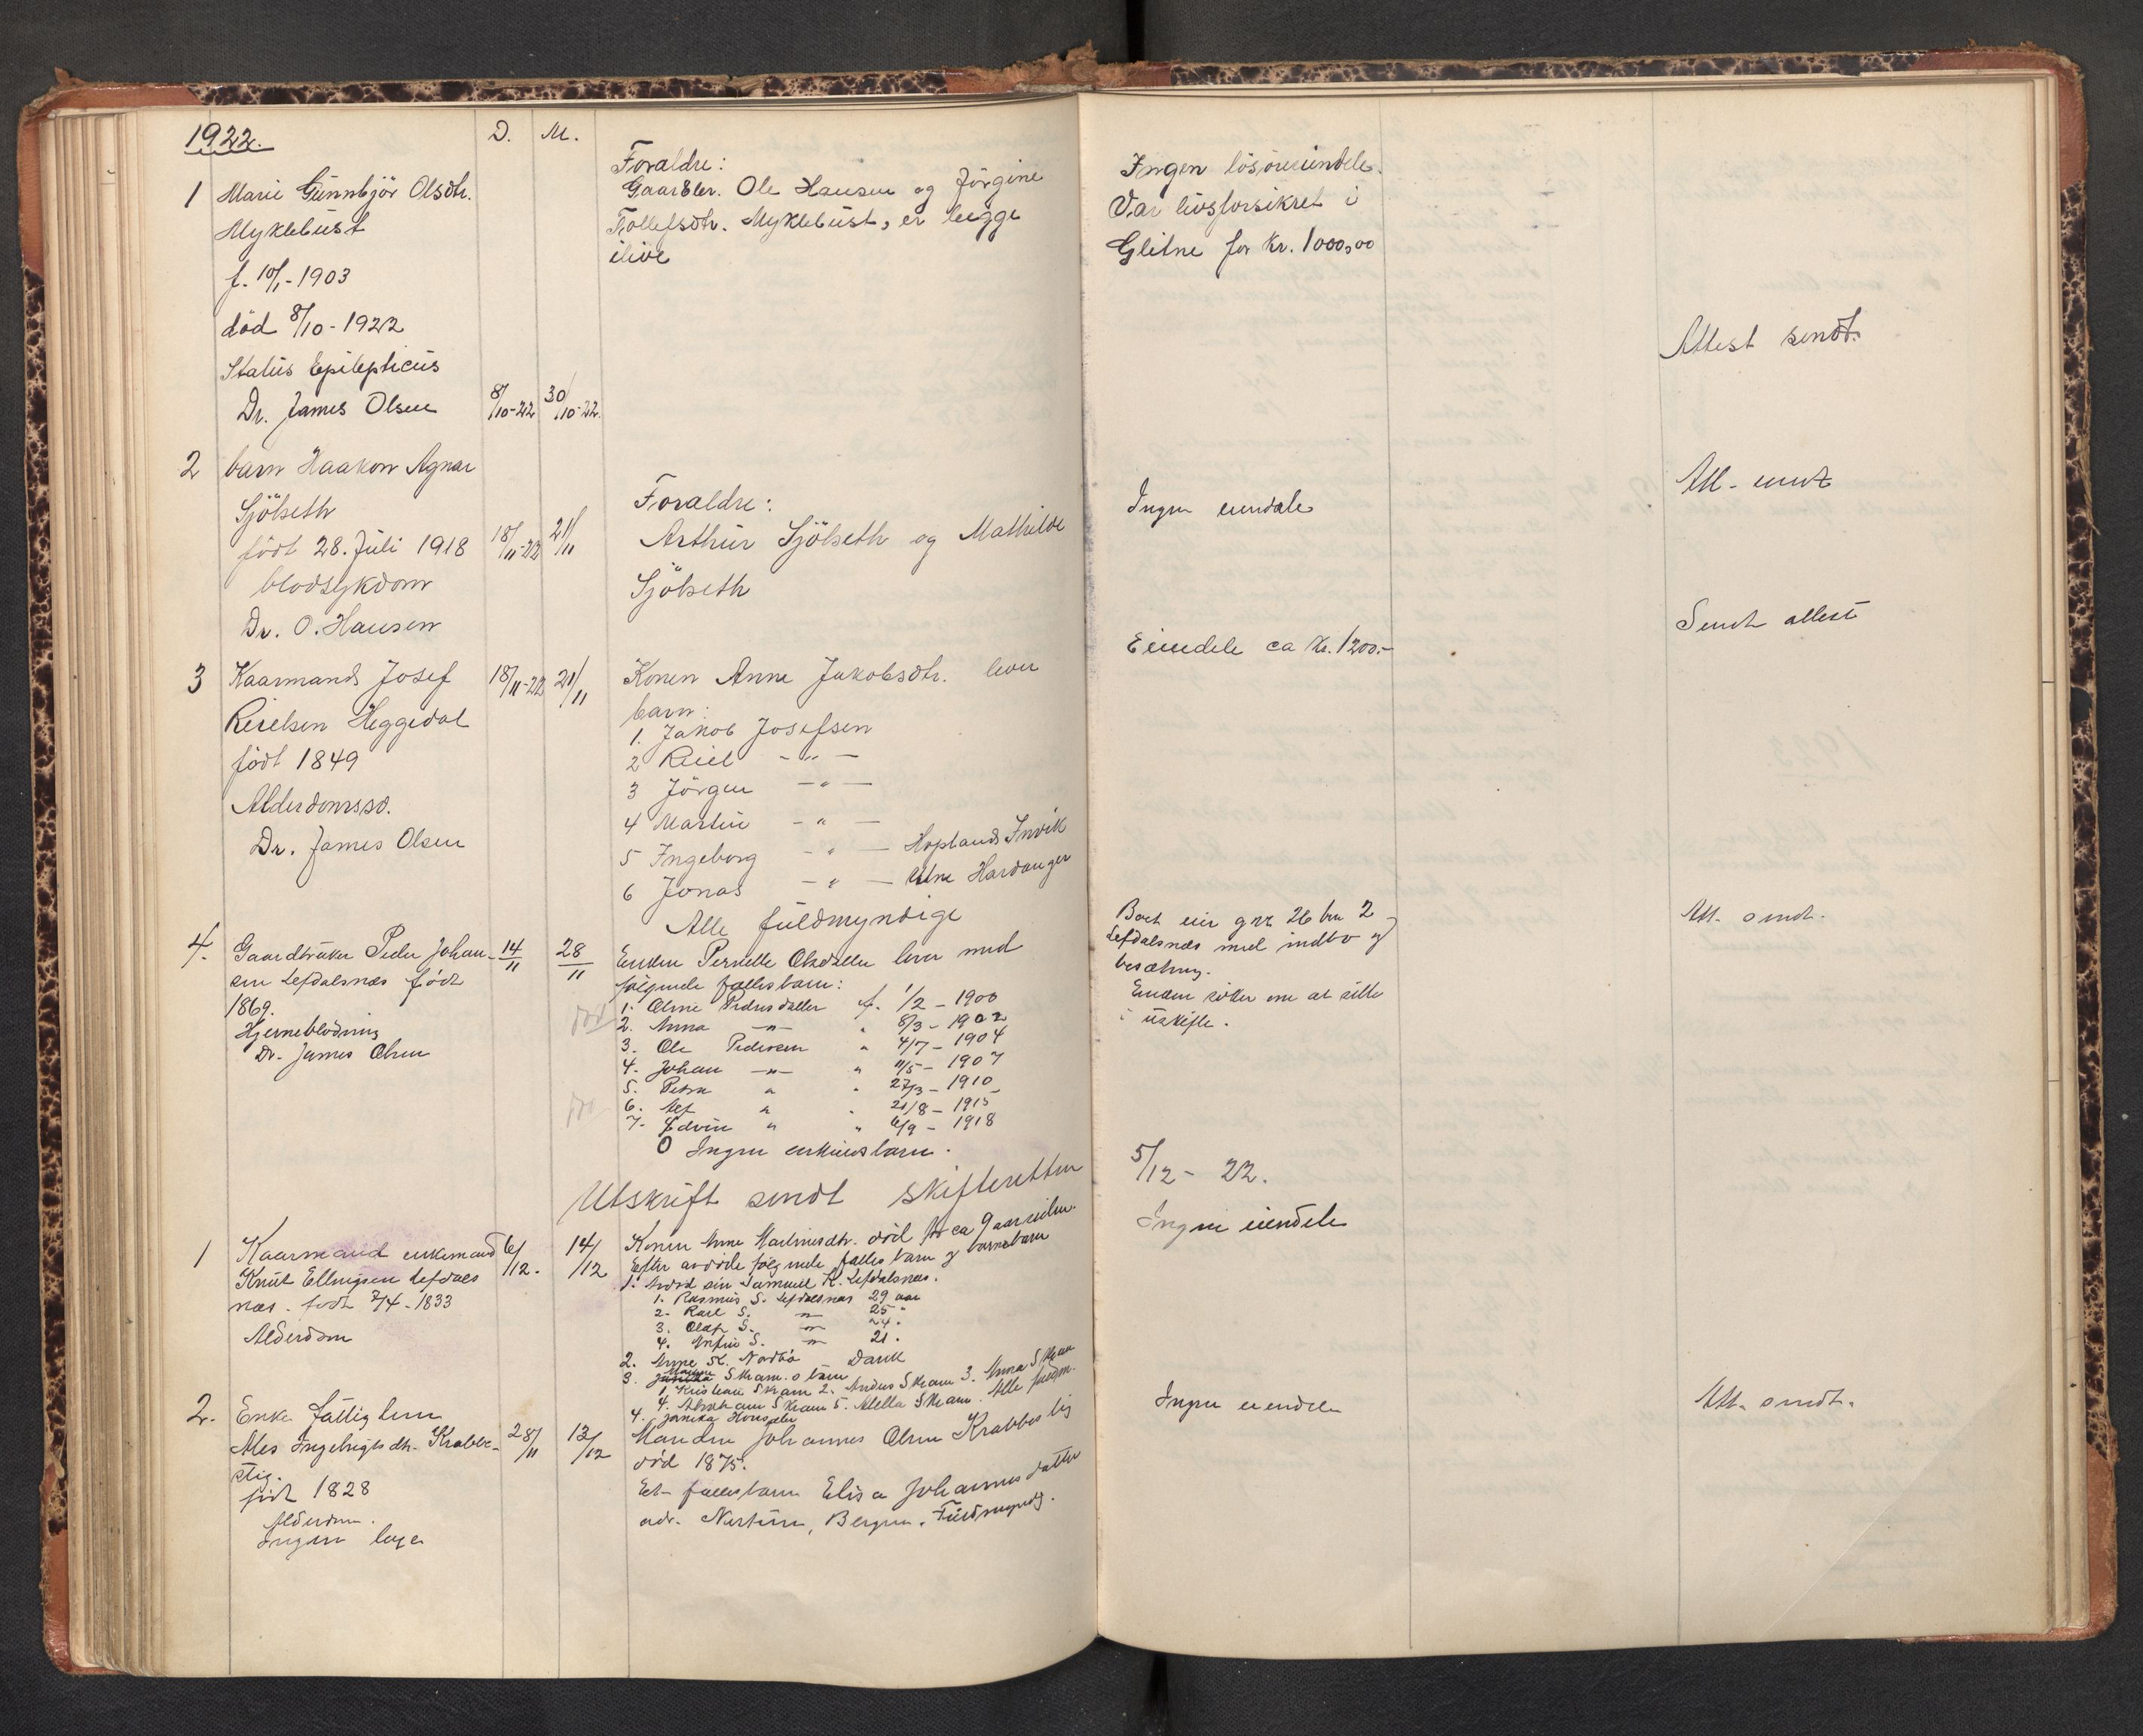 1922.
D. M.
1 Marie Gunnbjör Olsdtr.
Myklebust
f. 10/1-1903
död 8/10-1922
Status Epilepticus
Dr. James Olsen 8/10-22 30/10-22.
Foraldre:
Gaardbr. Ole Hansen og Jörgine
Tollefsdtr. Myklebust, er begge
ilive
Ingen lösöreeiendele.
Var livsforsikret i
Glitne for Kr. 1000,00
Attest sendt.
2 barn Haakon Agnar
Sjölseth
födt 28. Juli 1918 18/11-22 21/11
blodsykdom
Dr. O. Hansen
Foraldre:
Arthur Sjölseth og Mathilde
Sjölseth
Ingen eiendele
Att. sendt
3 Kaarmand Josef 18/11-22 21/11
Reielsen Heggedal
födt 1849
Alderdomssv.
Dr. James Olsen
Konen Anne Jakobsdtr. lever
barn:
1. Jakob Josefsen
2 Reiel - " -
3 Jörgen - " -
4 Martin - " -
5 Ingeborg - " - Hopland Invik
6 Jonas - " - Utne Hardanger
Alle fuldmyndige
Eiendele ca Kr. 1200.-
Sendt attest
4. Gaardbruker Peder Johan- 14/11 28/11
sen Lefdalsnæs födt
1869.
Hjerneblödning
Dr. James Olsen
Enken Pernelle Olsdatter lever med
følgende fællesbarn:
1. Oline Pedersdatter f. 1/2 - 1900
2. Anna -"- " 8/3 - 1902
3. Ole Pedersen " 4/7 - 1904
4. Johan -"- " 11/5 - 1907
5. Petra " " 27/3 - 1910
6. Alf " " 21/8 - 1915
7. Edvin " " 6/9 - 1918
0 Ingen enkeltsbarn.
Utskrift sendt skifteretten
Boet eier gnr 26 bnr 2
Lefdalsnæs med indbo og
besætning.
Enken söker om at sitte
i uskifte.
Att. sendt.
5/12 - 22.
1 Kaarmand enkemand 6/12. 14/12
Knut Ellingsen Lefdals
næs. födt 7/4 - 1833
Alderdom
Konen Anne Martinusdtr. död for ca 9 aar siden.
Efter avdöde følgende fælles barn og barnebarn
1. Avdöd sön Samuel K. Lefdalsnæs.
1. Rasmus S. Lefdalsnæs 29 aar
2. Karl S. -"- 25 "
3. Olaf S. -"- 24 "
4. Anfin S. -"- 21 "
2. Anne K. Nordbö Davik
3. Skram. o barn
1. Kristian Skram 2. Andres Skram 3. Anna Skram
4. Abraham Skram 5. Skram. Alle fuldm.
4. Janika
Ingen eiendele
2. Enke fattiglem
Ales Ingebrigtsdtr. Krabbe- 28/11 13/12
stig.
födt 1828
Alderdom.
Ingen læge
Manden Johannes Olsen Krabbestig
död 1875.
Et fællesbarn Elisa Johannesdatter
adr. Nestun, Bergen. Fuldmyndig.
Ingen eiendele
Att. sendt.